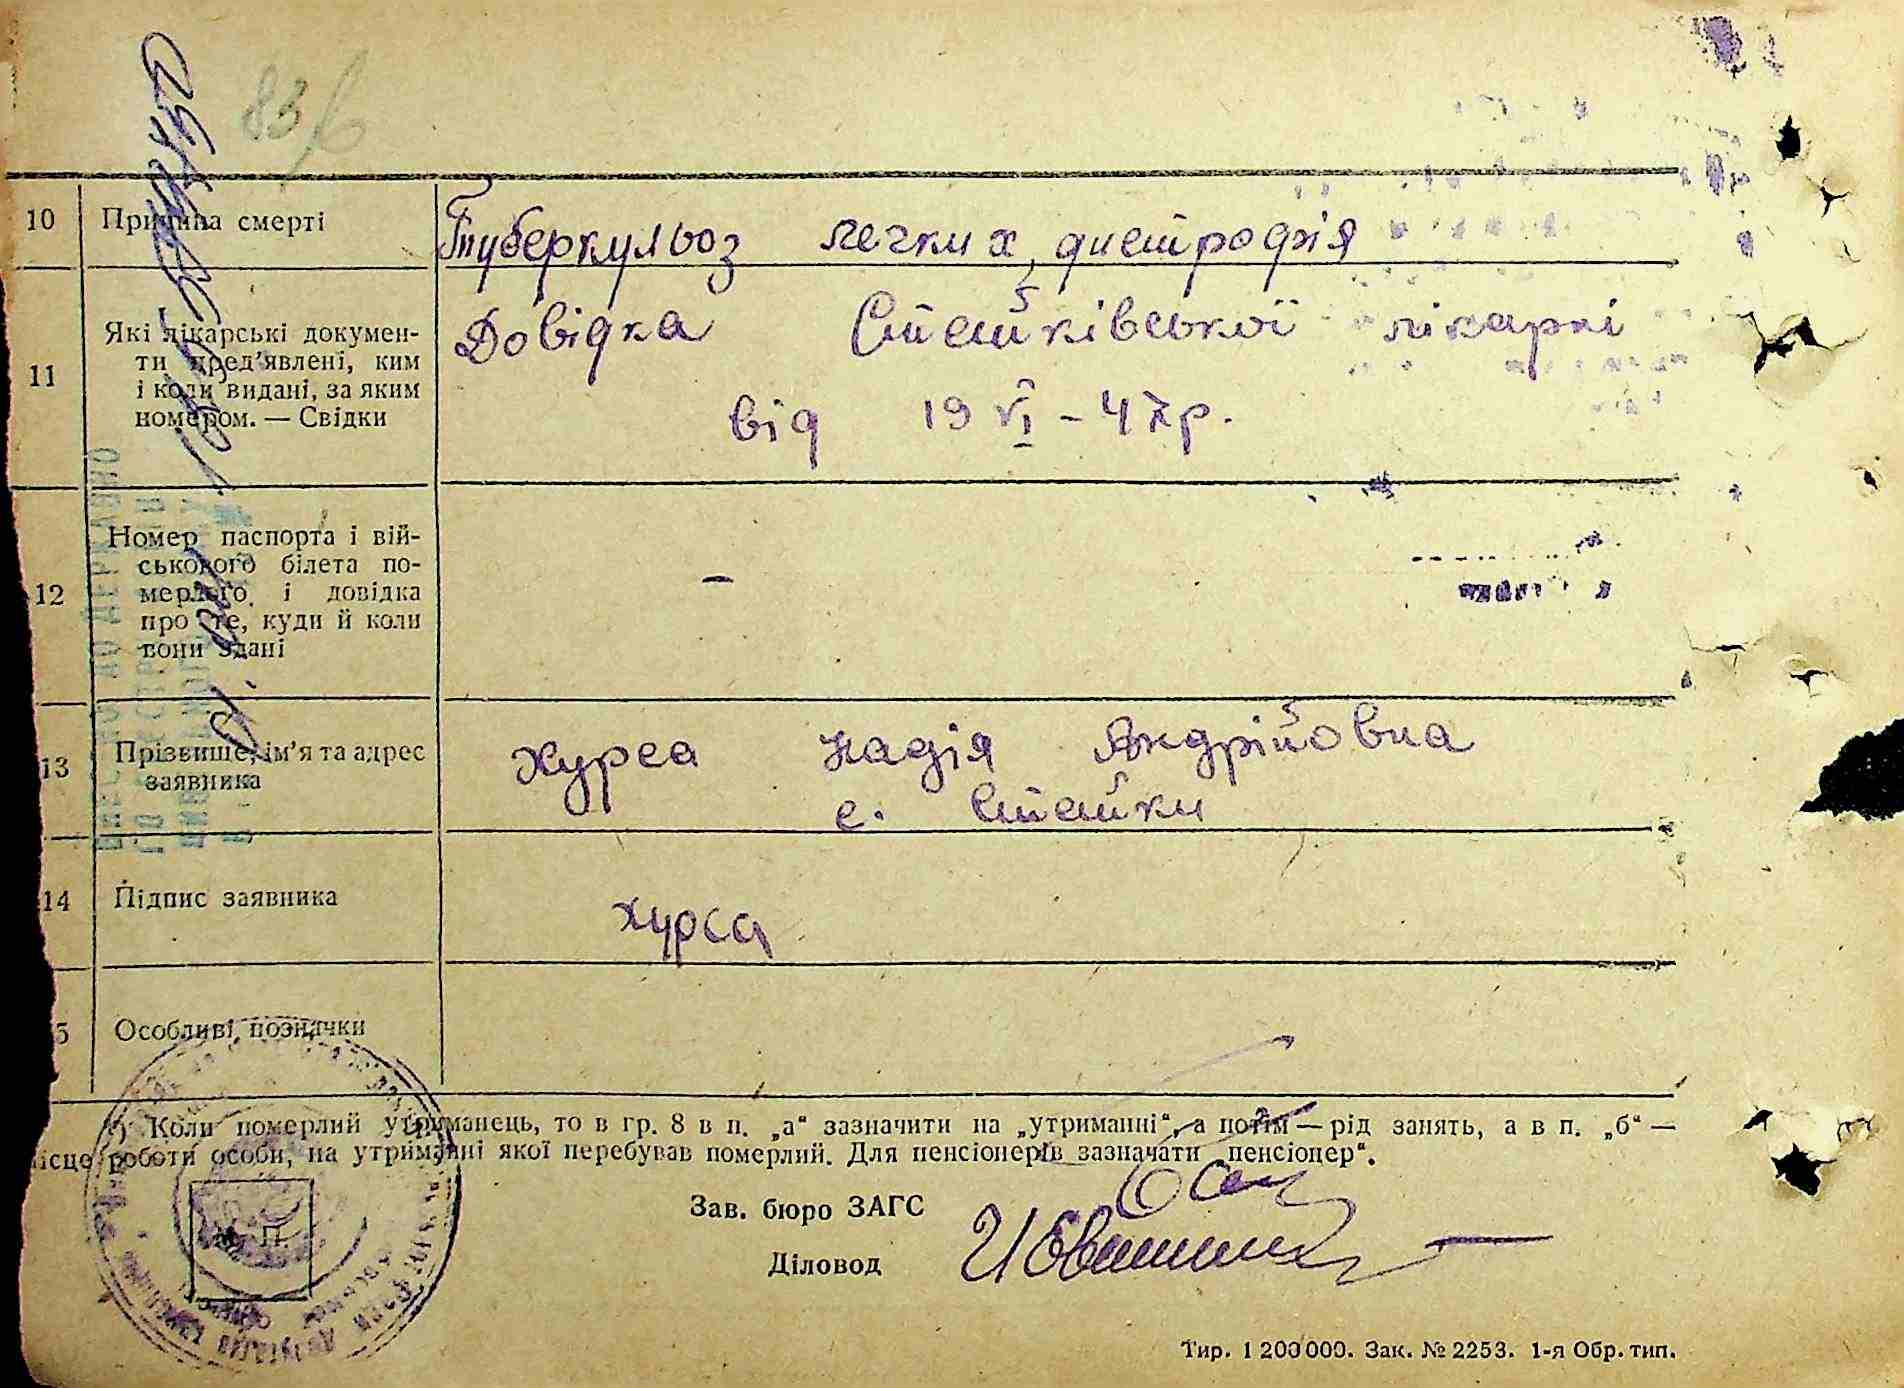 83
10 Причина смерті Туберкульоз легких, дистрофія
11 Які лікарські докумен-
ти пред’явлені, ким
і коли видані, за яким
номером. — Свідки
Довідка Стайківської лікарні
від 19 VI – 47 р.
12 Номер паспорта і вій-
ськового білета по-
мерлого і довідка
про те, куди й коли
вони здані
–
13 Прізвище, ім’я та адрес
заявника
Хурса Надія Андрійовна
с. Стайки
14 Підпис заявника
Хурса
5 Особливі позначки
) Коли померлий утриманець, то в гр. 8 в п. „а“ зазначити на „утриманні“, а потім — рід занять, а в п. „б“ —
ісце роботи особи, на утриманні якої перебував померлий. Для пенсіонерів зазначати „пенсіонер“.
Зав. бюро ЗАГС
Діловод
П.
Тир. 1 200 000. Зак. № 2253. 1-я Обр. тип.